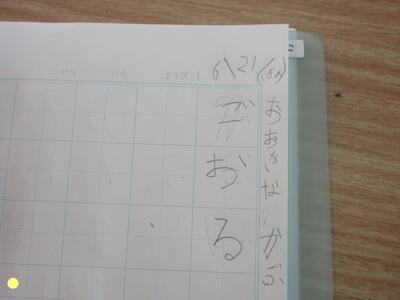 がつ にち ようび (
6\21/(きん)
おおきな かぶ
ごおる